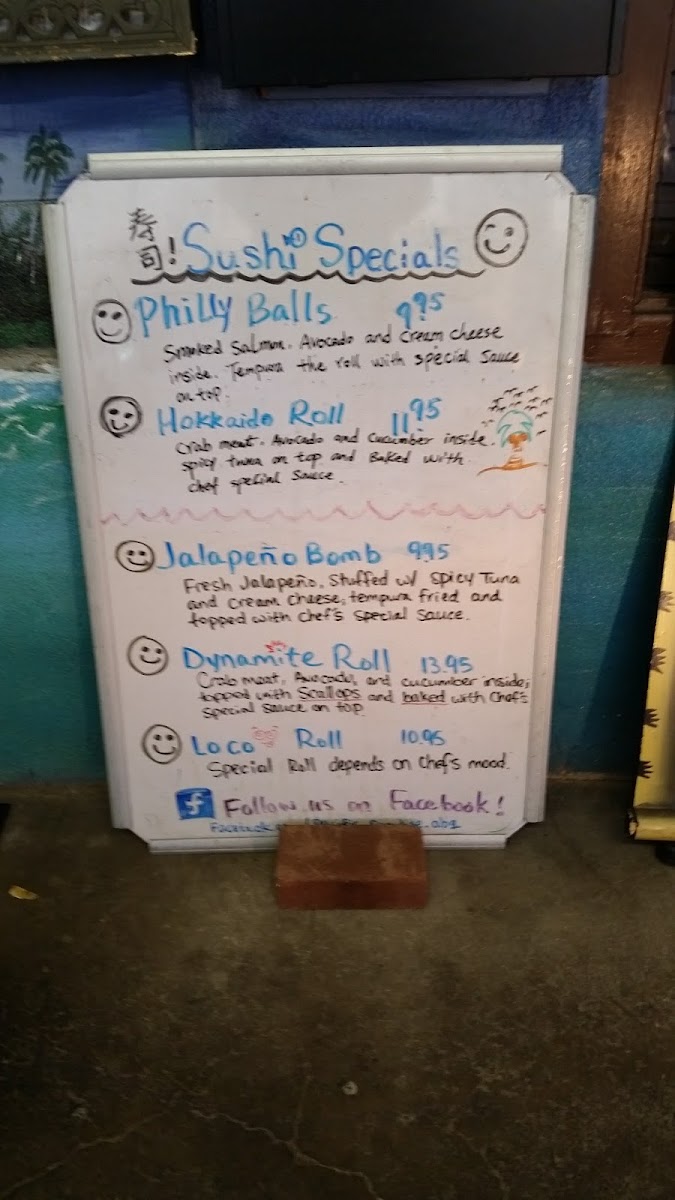 寿司! Sushi Specials
Philly Balls 9.95
Smoked Salmon, Avocado and Cream cheese
inside. Tempura the roll with special Sauce
on top.
Hokkaido Roll 11.95
Crab meat, Avocado and Cucumber inside.
spicy tuna on top and Baked with
chef special Sauce.
Jalapeño Bomb 9.95
Fresh Jalapeño, Stuffed w/ Spicy Tuna
and Cream Cheese, tempura fried and
topped with Chef's Special Sauce.
Dynamite Roll 13.95
Crab meat, Avocado, and cucumber inside;
topped with Scallops and baked with Chef's
Special Sauce on top.
Loco Roll 10.95
Special Roll depends on Chef's mood.
f Follow us on Facebook!